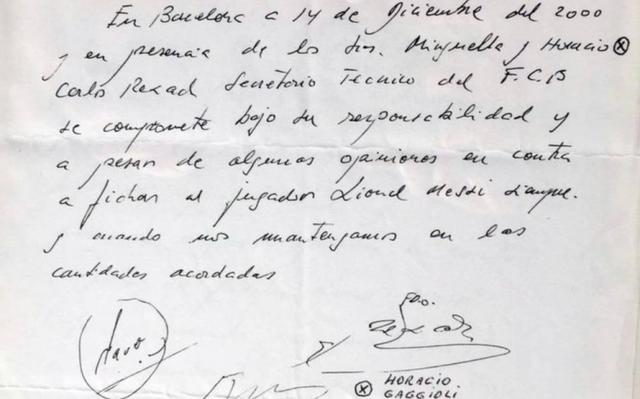 En Barcelona a 14 de Diciembre del 2000
y en presencia de los Srs. Minguella y Horacio ⓧ
Carlos Rexach Secretario Técnico del F.C.B
se compromete bajo su responsabilidad y
a pesar de algunas opiniones en contra
a fichar al jugador Lionel Messi siempre.
y cuando nos mantengamos en las
cantidades acordadas
Fdo.
ⓧ HORACIO
GAGGIOLI